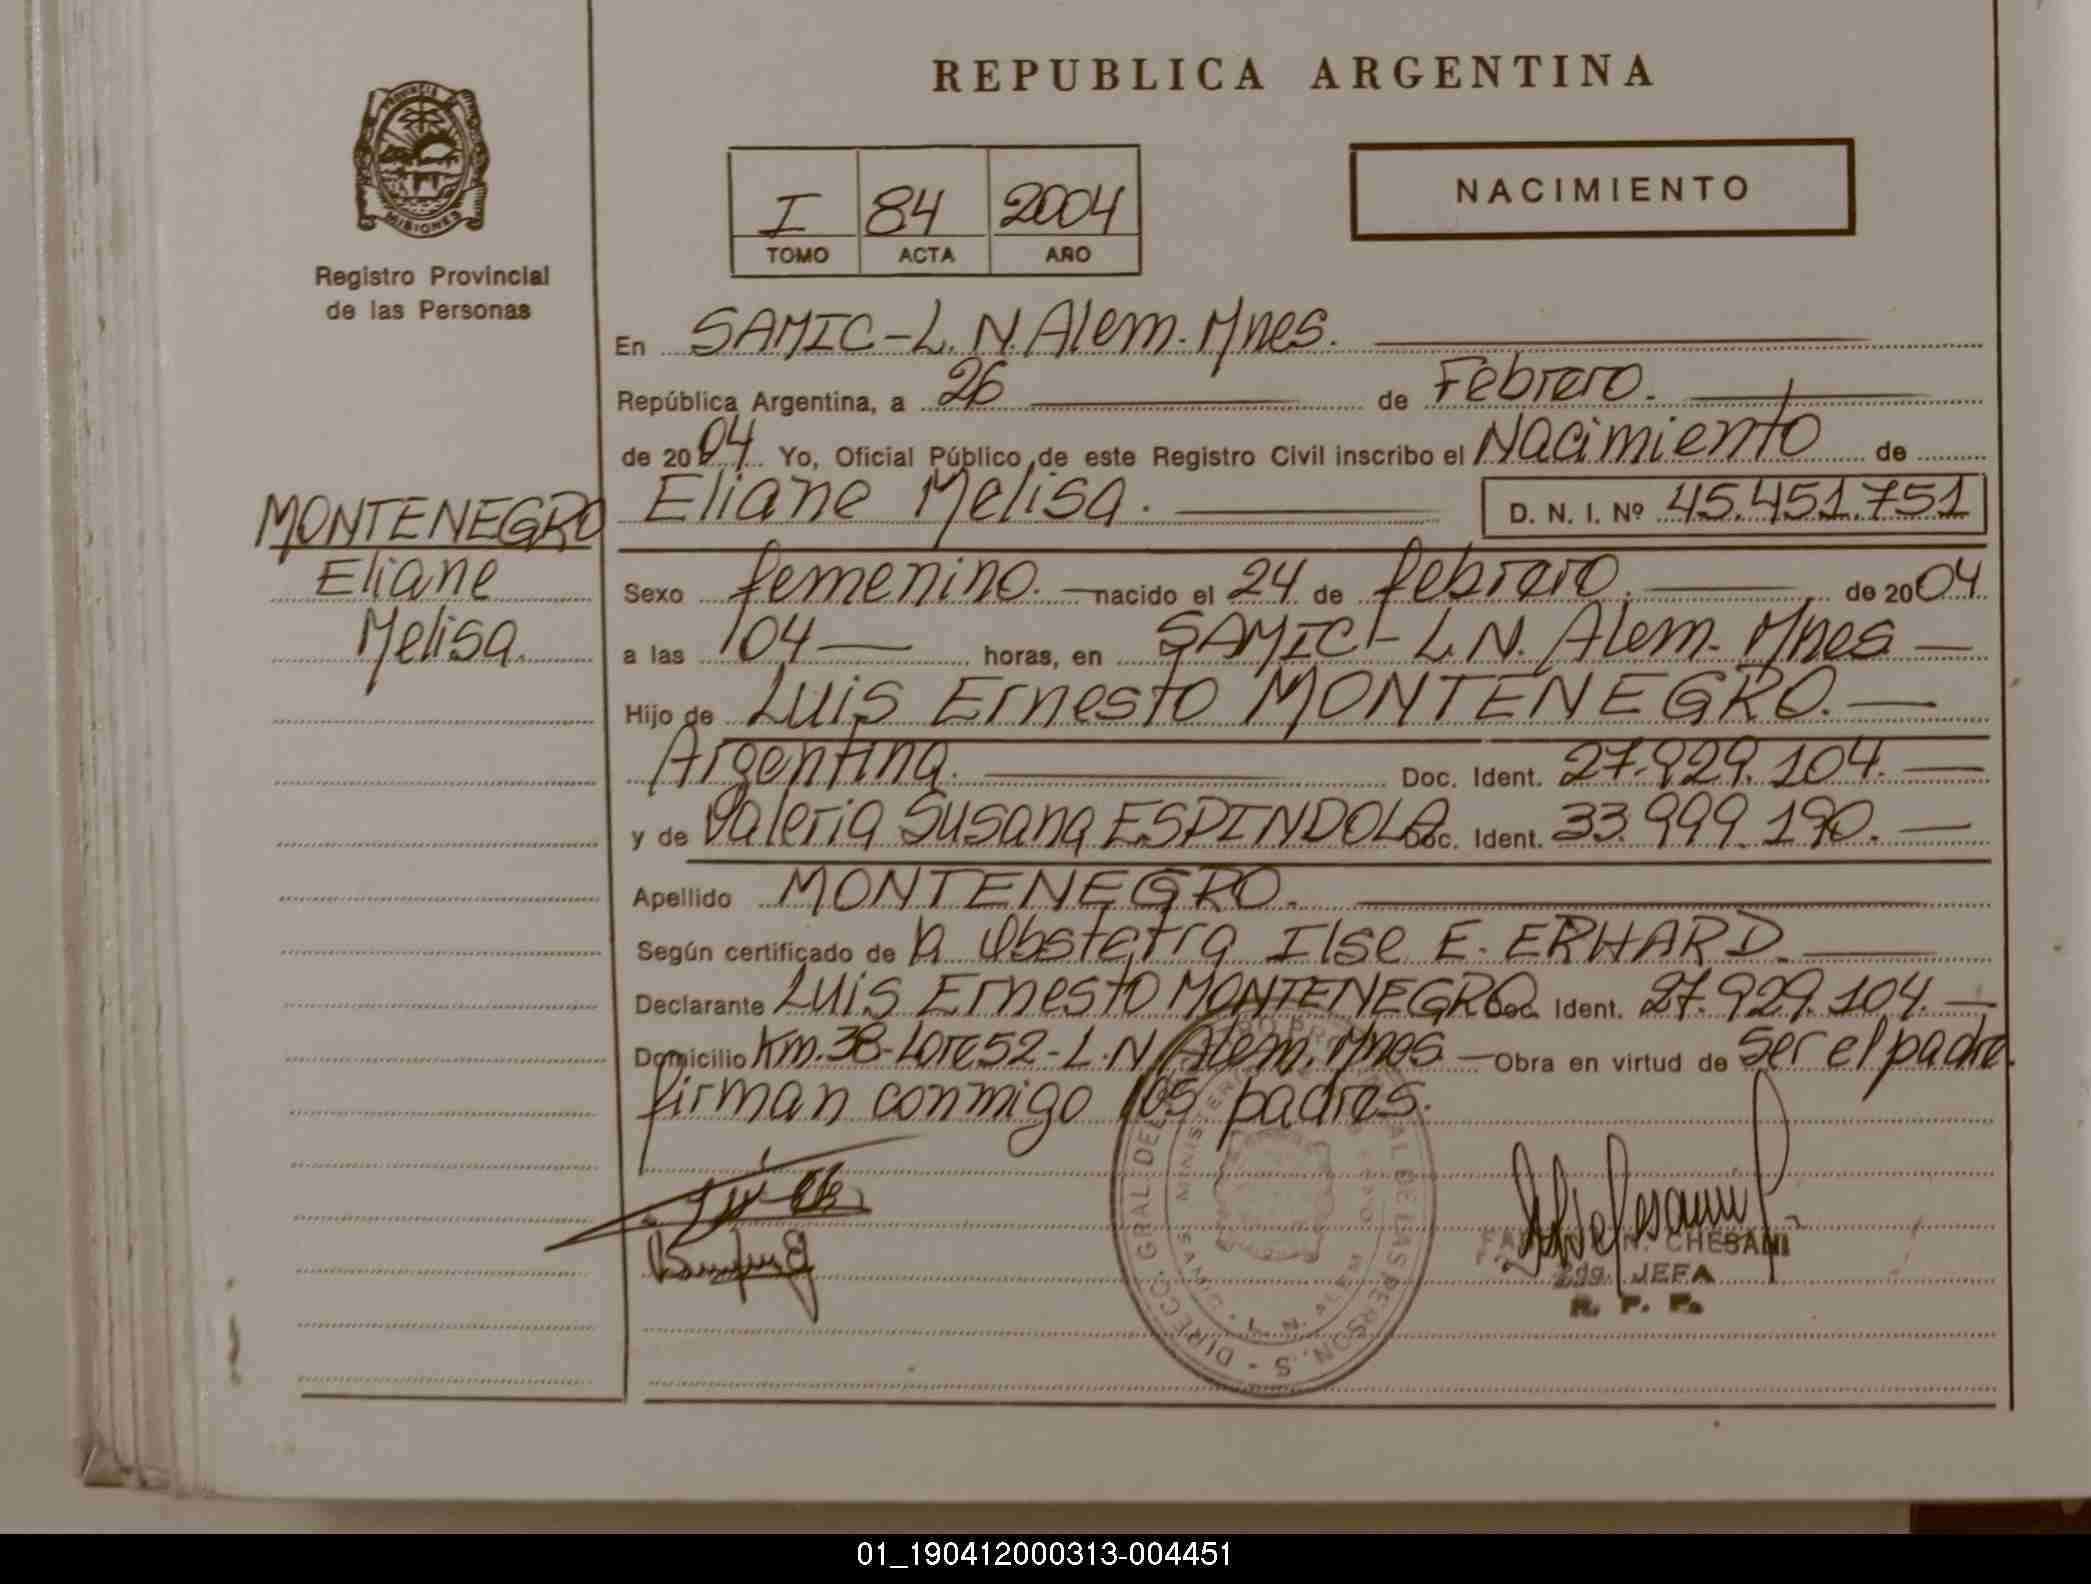 REPUBLICA ARGENTINA
PROVINCIA DE
MISIONES
Registro Provincial
de las Personas
I 84 2004
TOMO ACTA AÑO
NACIMIENTO
En SAMIC-L.N.Alem.Mnes.
República Argentina, a 26 de Febrero.
de 2004. Yo, Oficial Público de este Registro Civil inscribo el Nacimiento de
MONTENEGRO
Eliane
Melisa.
Eliane Melisa. D. N. I. Nº 45.451.751
Sexo femenino. nacido el 24 de febrero. de 2004
a las 04 horas, en SAMIC-L.N. Alem. Mnes
Hijo de Luis Ernesto MONTENEGRO.
Argentina. Doc. Ident. 27.929.104.
y de Valeria Susana ESPINDOLA Doc. Ident. 33.999.190.
Apellido MONTENEGRO.
Según certificado de la Obstetra Ilse E. ERHARD.
Declarante Luis Ernesto MONTENEGRO Doc. Ident. 27.929.104.
Domicilio Km.38-Lote52-L.N.Alem.Mnes Obra en virtud de Ser el padre.
firman conmigo los padres.
N. CHESANI
JEFA
R. P. P.
L. N. ALEM
01_190412000313-004451